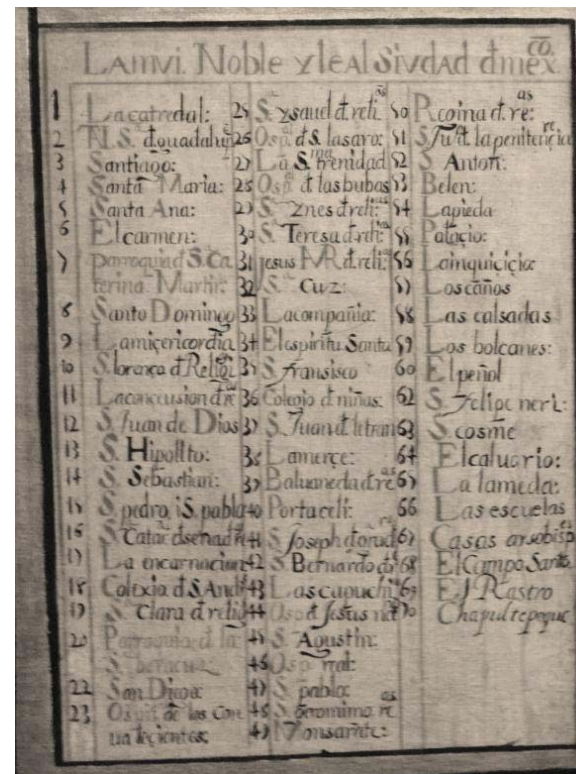 La mui. Noble y leal Siudad đ mexco.
1 La catredal:
2 N. S. đ guadalup
3 Santiago:
4 Santa Maria:
5 Santa Ana:
6 El carmen:
7 parroquia đ S. Ca
terina Martir:
8 Santo Domingo
9 La miçericordia
10 S. lorenço đ Religi
11 La concusion đ re
12 S. Juan de Dios
13 S. Hipolito:
14 S. Sebastian:
15 S. pedro, i S. pablo
16 S. Catar đ senađ
17 La encarnacion
18 Colexia đ S. And
19 S. Clara đ relig
20 Parroquia đ la
S. Beracus:
22 San Diego:
23 Ospit de los Con
ualecientes:
25 S. ysauel đ reli as
26 Ospl đ S. lasaro:
27 La S.ma trenidad
28 Ospl đ las bubas
29 S. Ynes đ reli: as
30 S. Teresa đ reli: as
31 jesus M đ reli: as
32 S. Cruz:
33 La compañia:
34 El espiritu Santu
35 S. fransisco
36 Colegio đ niñas:
37 S. Juan đ letran
38 La merçe:
39 Baluaneda đ re as
40 Portaceli:
41 S. Joseph đ građ re
42 S. Bernardo đ
43 Las capuchi as
44 Osp đ Jesus na
45 S. Agustin:
46 Osp rral:
47 S. pablo:
48 S. geronimo re as
49 Monsarate:
50 Regina đ re: as
51 S. Ju đ la penitençia re
52 S. Anton:
53 Belen:
54 La pieda
55 Palaçio:
56 La inquiçiçio:
57 Los caños
58 Las calsadas
59 Los bolcanes:
60 El peñol
62 S. Felipe neri:
63 S. cosme
64 El caluario:
65 La lameda:
66 Las escuelas
67 Casas arsobisp es
68 El Campo Santo
69 El Rastro
70 Chapultepeque